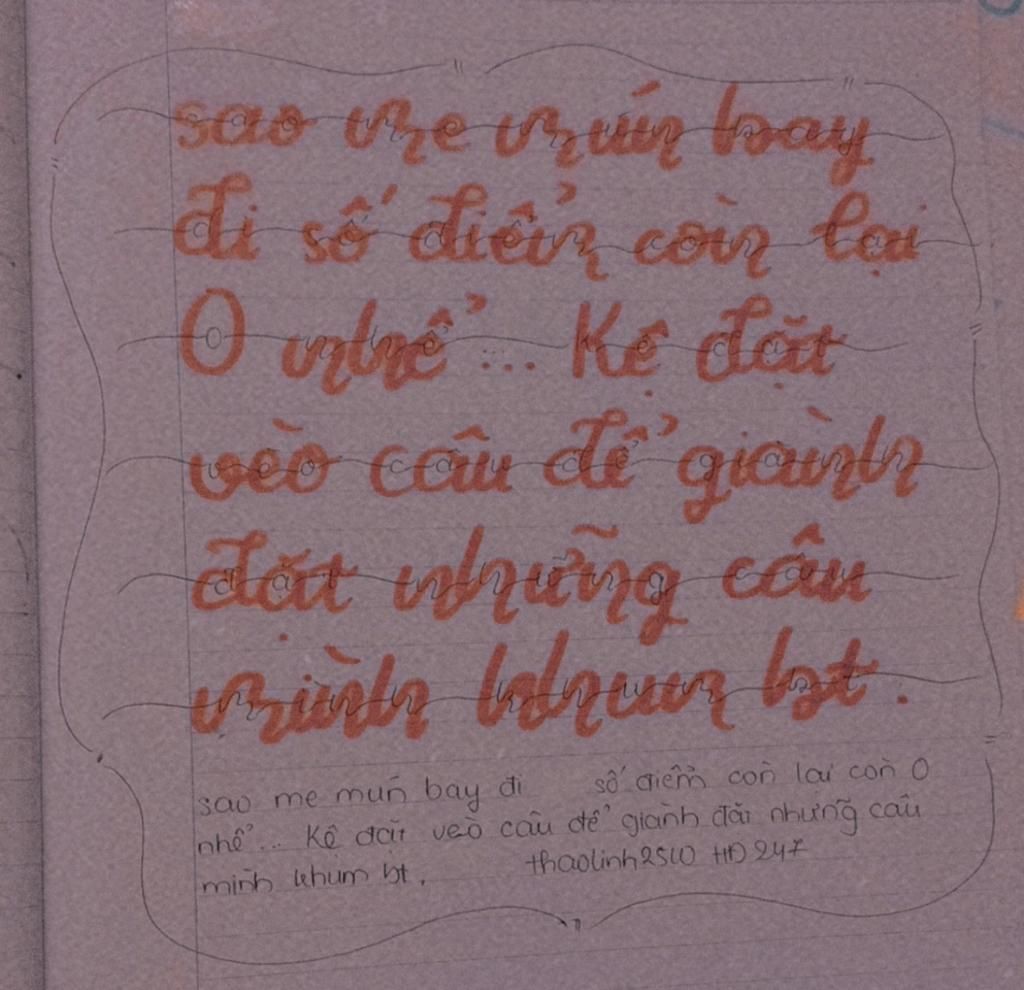 sao me mún bay
đi số điểm còn lại
0 nhể ... Kệ đặt
vèo câu để giành
đặt những câu
mình khum bt .
sao me mún bay đi số điểm còn lại còn 0
nhể... Kệ đặt vèo câu để giành đặt những câu
mình khum bt . thaolinh2510 HĐ 247